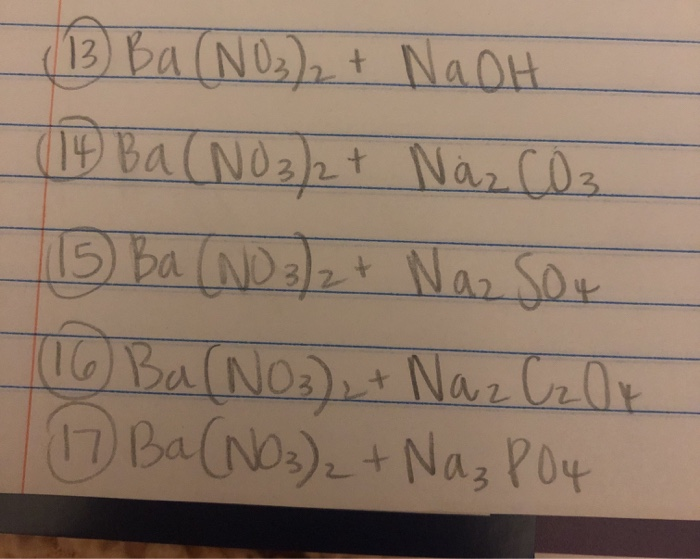 (13) Ba(NO3)2 + NaOH
(14) Ba(NO3)2 + Na2CO3
(15) Ba(NO3)2 + Na2SO4
(16) Ba(NO3)2 + Na2C2O4
(17) Ba(NO3)2 + Na3PO4